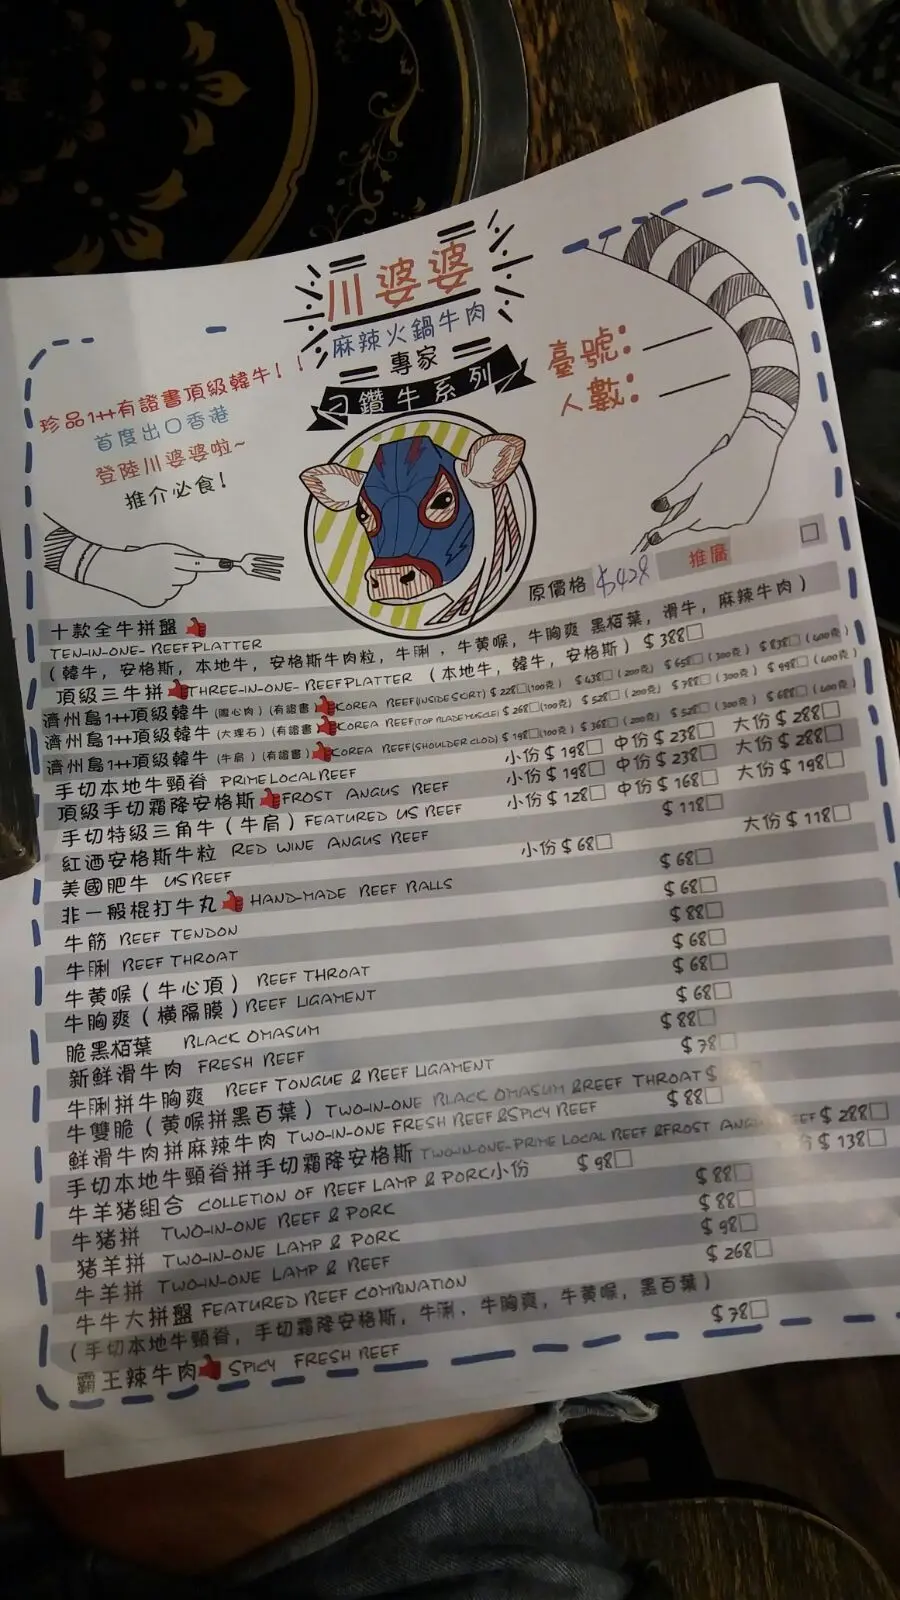 川婆婆
麻辣火鍋牛肉
專家
刁鑽牛系列
珍品1++有證書頂級韓牛!!
首度出口香港
登陸川婆婆啦~
推介必食!
臺號:
人數:
原價格 $428 推廣
十款全牛拼盤
TEN-IN-ONE- BEEF PLATTER
(韓牛, 安格斯, 本地牛, 安格斯牛肉粒, 牛脷, 牛黄喉, 牛胸爽 黑栢葉, 滑牛, 麻辣牛肉)
頂級三牛拼 THREE-IN-ONE- BEEF PLATTER (本地牛, 韓牛, 安格斯) $388
濟州島1++頂級韓牛 (有證書) KOREA BEEF(INSIDE SKIRT) $228(100克) $438(200克) $658(300克) $838(400克)
濟州島1++頂級韓牛 (大理石)(有證書) KOREA BEEF(TOP BLADE MUSCLE) $268(100克) $528(200克) $788(300克) $998(400克)
濟州島1++頂級韓牛 (牛肩)(有證書) KOREA BEEF(SHOULDER CLOD) $198(100克) $368(200克) $528(300克) $688(400克)
手切本地牛頸脊 PRIME LOCAL BEEF 小份$198 中份$238 大份$288
頂級手切霜降安格斯 FROST ANGUS BEEF 小份$198 中份$238 大份$288
手切特級三角牛(牛肩) FEATURED US BEEF 小份$128 中份$168 大份$198
紅酒安格斯牛粒 RED WINE ANGUS BEEF $118
美國肥牛 US BEEF 小份$68 大份$118
非一般棍打牛丸 HAND-MADE BEEF BALLS $68
牛筋 BEEF TENDON $68
牛脷 BEEF THROAT $88
牛黄喉(牛心頂) BEEF THROAT $68
牛胸爽(橫隔膜) BEEF LIGAMENT $68
脆黑栢葉 BLACK OMASUM $68
新鮮滑牛肉 FRESH BEEF $88
牛脷拼牛胸爽 BEEF TONGUE & BEEF LIGAMENT $78
牛雙脆(黄喉拼黑百葉) TWO-IN-ONE BLACK OMASUM & BEEF THROAT $
鮮滑牛肉拼麻辣牛肉 TWO-IN-ONE FRESH BEEF & SPICY BEEF $88
手切本地牛頸脊拼手切霜降安格斯 TWO-IN-ONE-PRIME LOCAL BEEF & FROST ANGUS BEEF $288
牛羊豬組合 COLLETION OF BEEF LAMP & PORK 小份 $98 份$138
牛豬拼 TWO-IN-ONE BEEF & PORK $88
豬羊拼 TWO-IN-ONE LAMP & PORK $88
牛羊拼 TWO-IN-ONE LAMP & BEEF $98
牛牛大拼盤 FEATURED BEEF COMBINATION $268
(手切本地牛頸脊, 手切霜降安格斯, 牛脷, 牛胸爽, 牛黄喉, 黑百葉)
霸王辣牛肉 SPICY FRESH BEEF $78